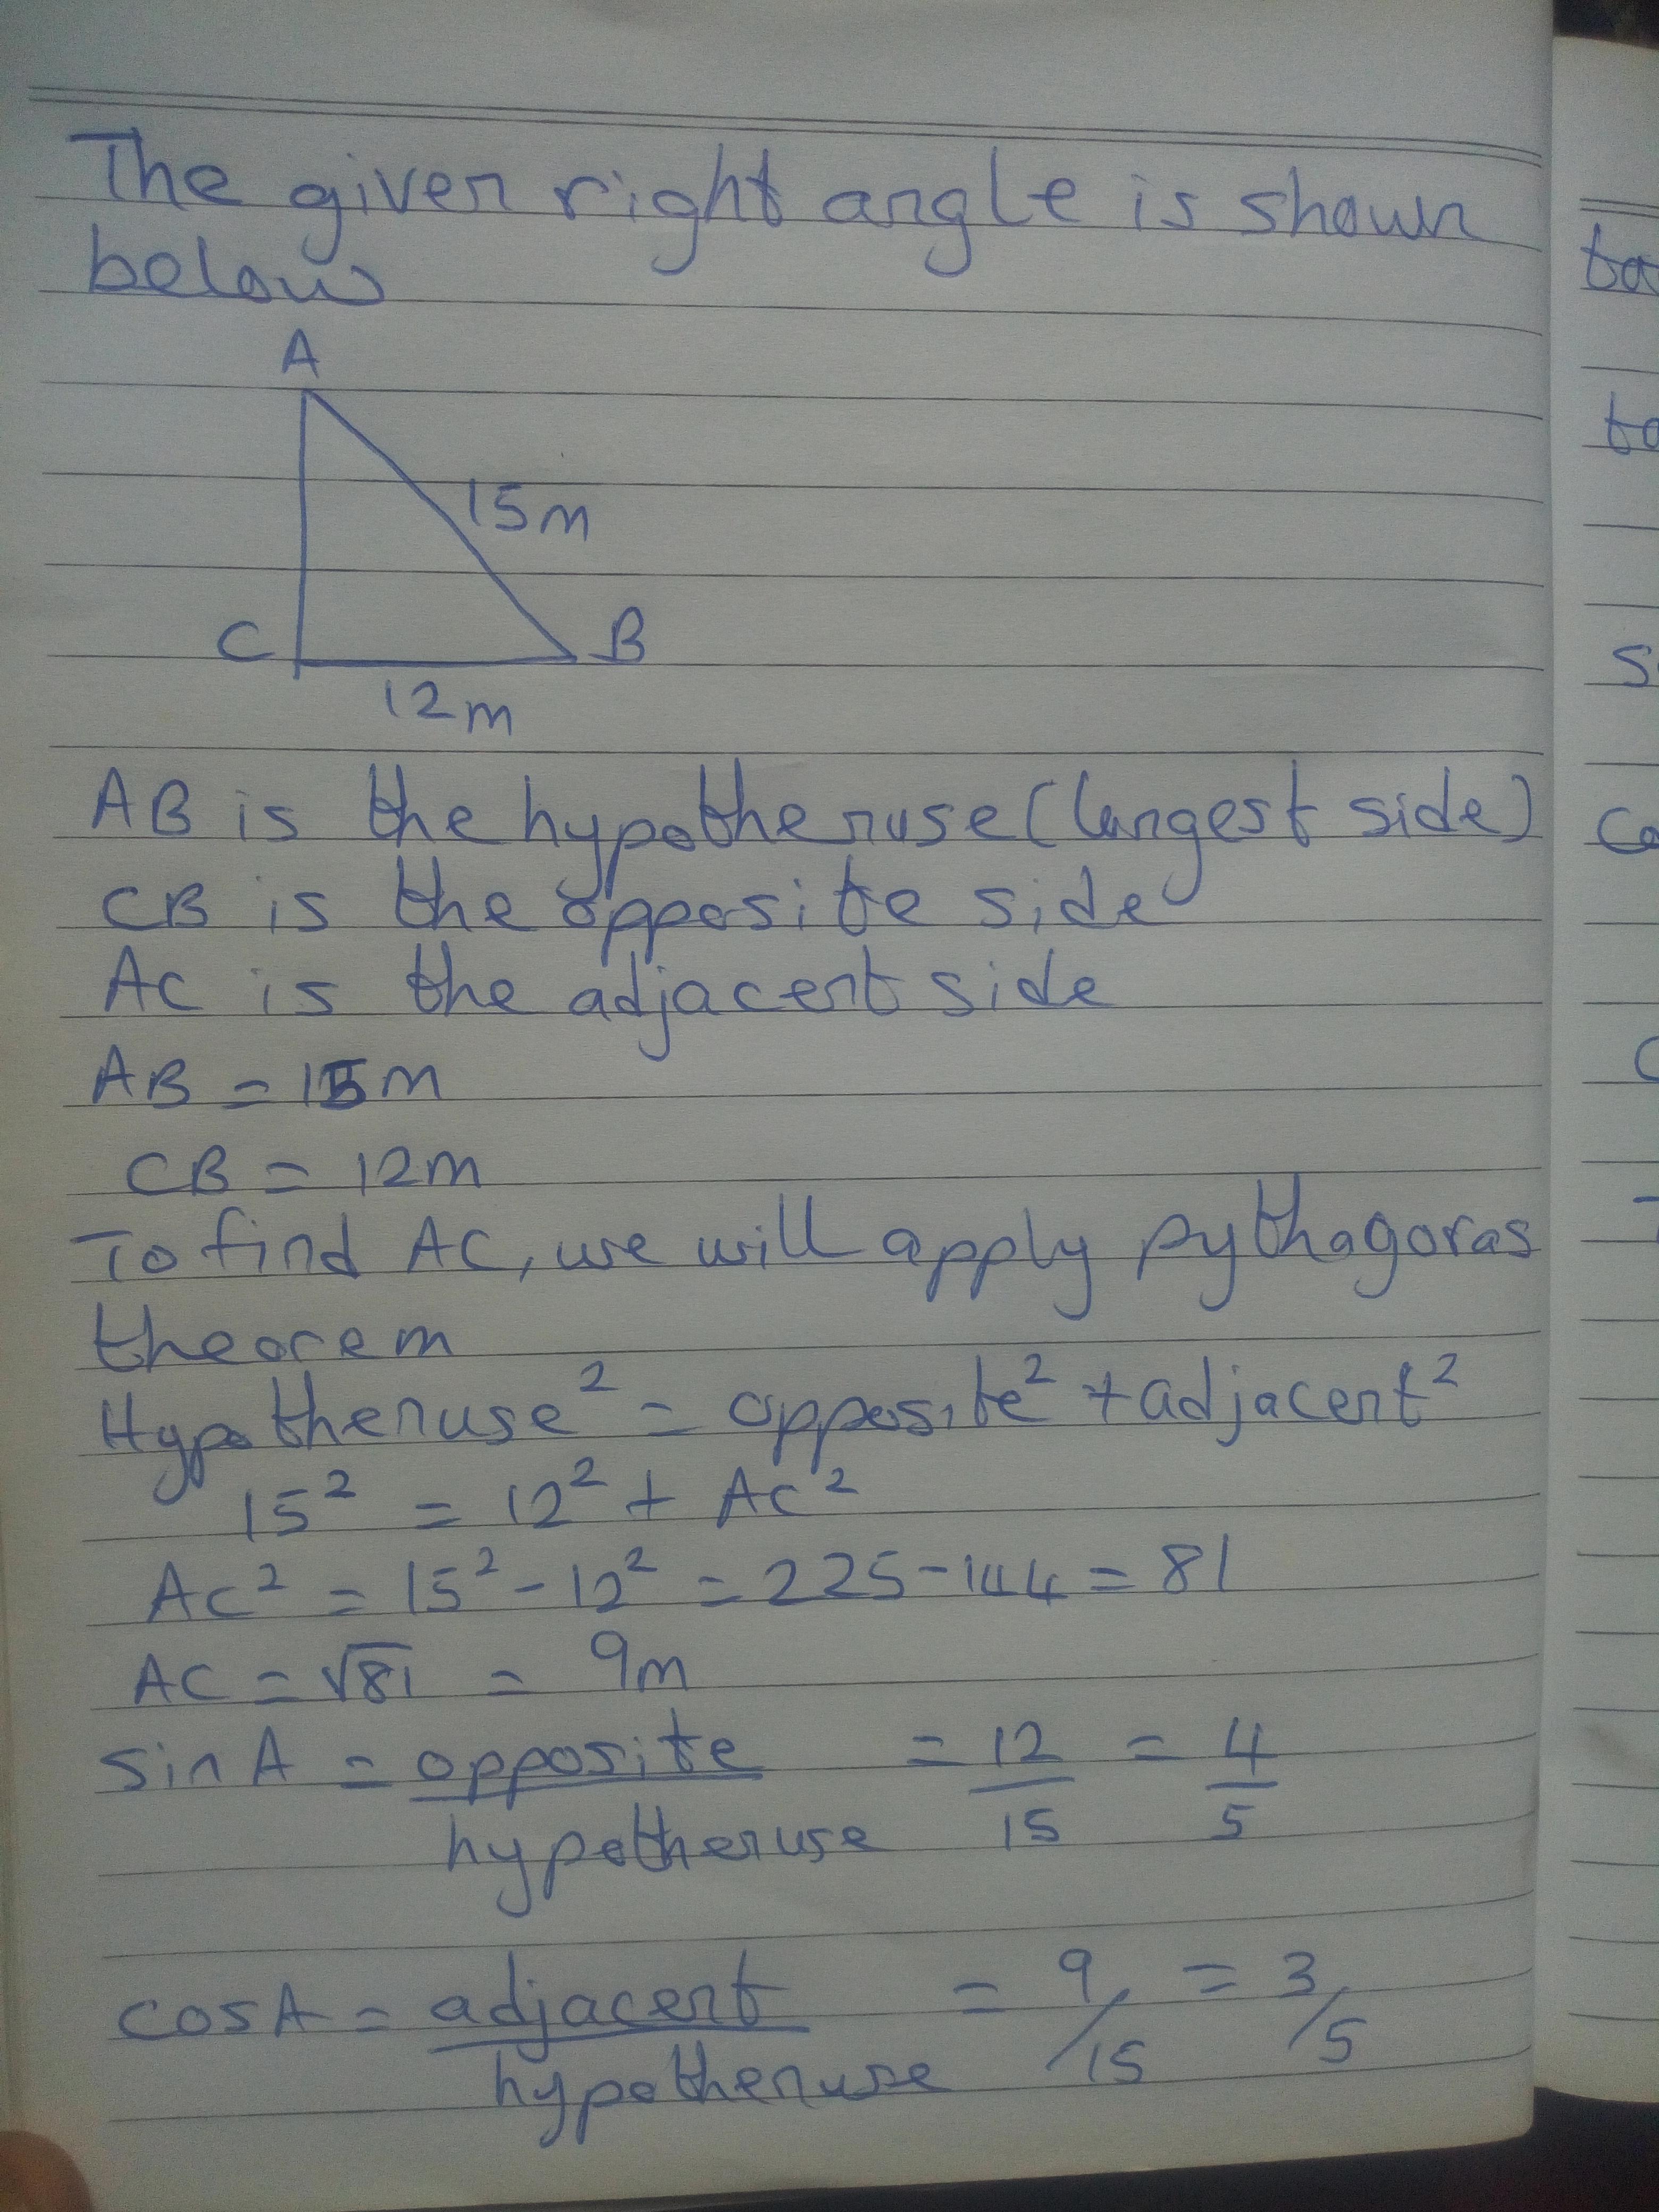 The given right angle is shown
below
A
15m
C
B
12m
AB is the hypothenuse (longest side)
CB is the opposite side
AC is the adjacent side
AB = 15m
CB = 12m
To find AC, we will apply pythagoras
theorem
Hypothenuse² = opposite² + adjacent²
15² = 12² + AC²
AC² = 15² - 12² = 225 - 144 = 81
AC = √81 = 9m
sin A = opposite/hypothenuse = 12/15 = 4/5
cos A = adjacent/hypothenuse = 9/15 = 3/5